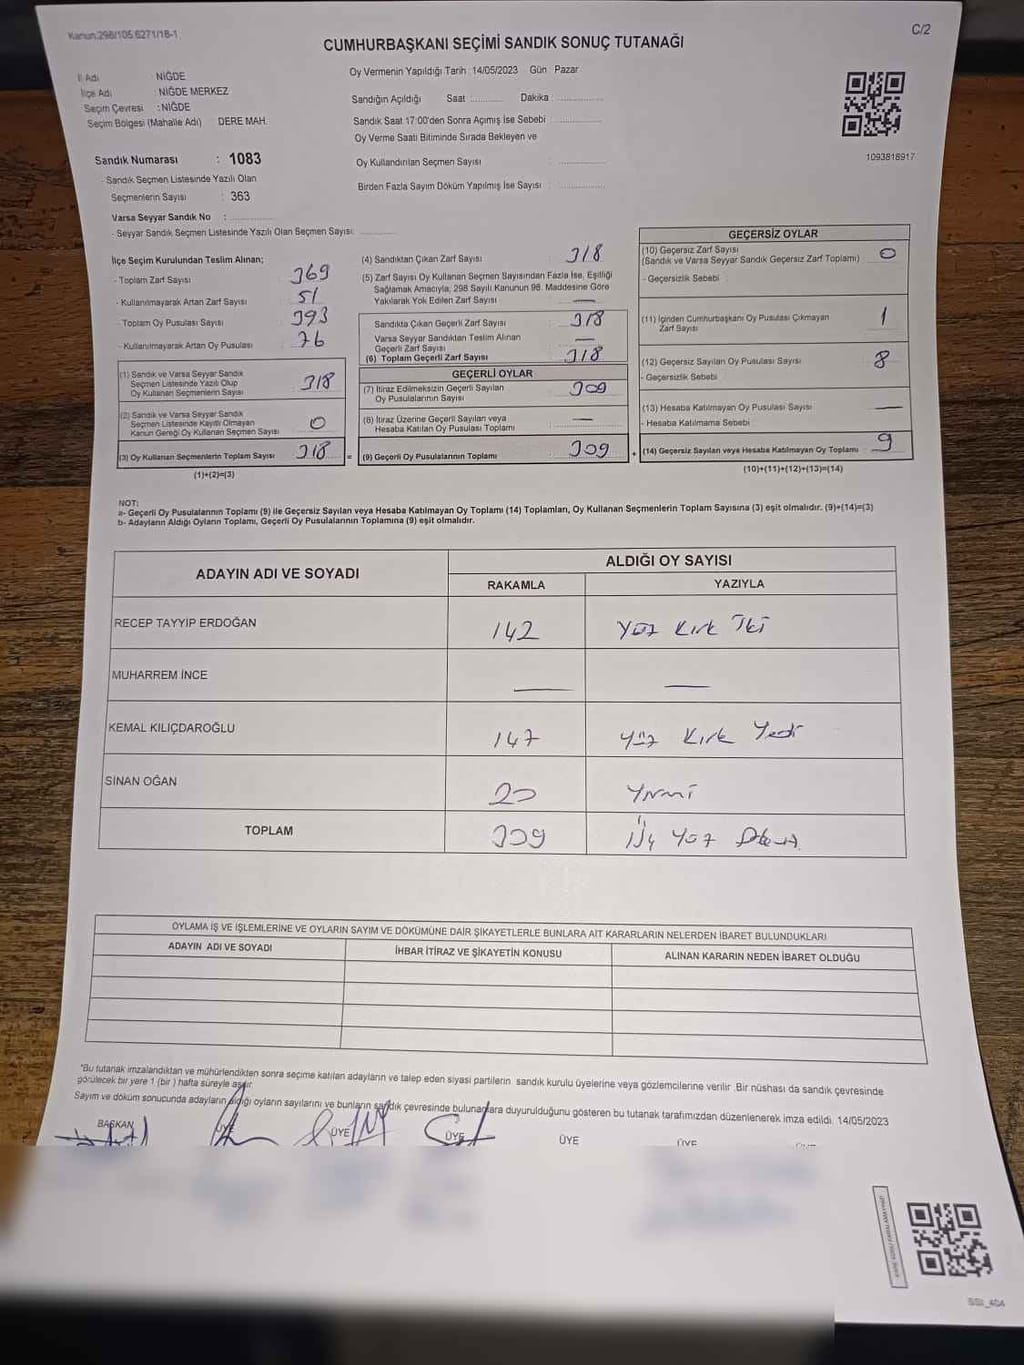 Kanun:298/105,6271/18-1
C/2
CUMHURBAŞKANI SEÇİMİ SANDIK SONUÇ TUTANAĞI
İl Adı : NİĞDE
İlçe Adı : NİĞDE MERKEZ
Seçim Çevresi : NİĞDE
Seçim Bölgesi (Mahalle Adı) : DERE MAH.
Oy Vermenin Yapıldığı Tarih : 14/05/2023 Gün : Pazar
Sandığın Açıldığı Saat :........... Dakika :..............
Sandık Saat 17:00'den Sonra Açımış İse Sebebi ...............
Oy Verme Saati Bitiminde Sırada Bekleyen ve
Oy Kullandırılan Seçmen Sayısı : ...............
Birden Fazla Sayım Döküm Yapılmış İse Sayısı : ...............
1093818917
Sandık Numarası : 1083
- Sandık Seçmen Listesinde Yazılı Olan
Seçmenlerin Sayısı : 363
Varsa Seyyar Sandık No : ..............
- Seyyar Sandık Seçmen Listesinde Yazılı Olan Seçmen Sayısı: ............
İlçe Seçim Kurulundan Teslim Alınan;
- Toplam Zarf Sayısı : 369
- Kullanılmayarak Artan Zarf Sayısı : 51
- Toplam Oy Pusulası Sayısı : 393
- Kullanılmayarak Artan Oy Pusulası : 76
(1) Sandık ve Varsa Seyyar Sandık
Seçmen Listesinde Yazılı Olup
Oy Kullanan Seçmenlerin Sayısı : 318
(2) Sandık ve Varsa Seyyar Sandık
Seçmen Listesinde Kayıtlı Olmayan
Kanun Gereği Oy Kullanan Seçmen Sayısı : 0
(3) Oy Kullanan Seçmenlerin Toplam Sayısı : 318 =
(1)+(2)=(3)
(4) Sandıktan Çıkan Zarf Sayısı : 318
(5) Zarf Sayısı Oy Kullanan Seçmen Sayısından Fazla İse, Eşitliği
Sağlamak Amacıyla; 298 Sayılı Kanunun 98. Maddesine Göre
Yakılarak Yok Edilen Zarf Sayısı : —
Sandıkta Çıkan Geçerli Zarf Sayısı : 318
Varsa Seyyar Sandıktan Teslim Alınan
Geçerli Zarf Sayısı : —
(6) Toplam Geçerli Zarf Sayısı : 318
GEÇERLİ OYLAR
(7) İtiraz Edilmeksizin Geçerli Sayılan
Oy Pusulalarının Sayısı : 309
(8) İtiraz Üzerine Geçerli Sayılan veya
Hesaba Katılan Oy Pusulası Toplamı : —
(9) Geçerli Oy Pusulalarının Toplamı : 309 +
GEÇERSİZ OYLAR
(10) Geçersiz Zarf Sayısı
(Sandık ve Varsa Seyyar Sandık Geçersiz Zarf Toplamı) : 0
- Geçersizlik Sebebi
(11) İçinden Cumhurbaşkanı Oy Pusulası Çıkmayan
Zarf Sayısı : 1
(12) Geçersiz Sayılan Oy Pusulası Sayısı : 8
- Geçersizlik Sebebi
(13) Hesaba Katılmayan Oy Pusulası Sayısı : —
- Hesaba Katılmama Sebebi
(14) Geçersiz Sayılan veya Hesaba Katılmayan Oy Toplamı : 9
(10)+(11)+(12)+(13)=(14)
NOT:
a- Geçerli Oy Pusulalarının Toplamı (9) ile Geçersiz Sayılan veya Hesaba Katılmayan Oy Toplamı (14) Toplamları, Oy Kullanan Seçmenlerin Toplam Sayısına (3) eşit olmalıdır. (9)+(14)=(3)
b- Adayların Aldığı Oyların Toplamı, Geçerli Oy Pusulalarının Toplamına (9) eşit olmalıdır.
ADAYIN ADI VE SOYADI
ALDIĞI OY SAYISI
RAKAMLA YAZIYLA
RECEP TAYYİP ERDOĞAN 142 Yüz Kırk İki
MUHARREM İNCE — —
KEMAL KILIÇDAROĞLU 147 Yüz Kırk Yedi
SİNAN OĞAN 20 Yirmi
TOPLAM 309 Üç Yüz Dokuz
OYLAMA İŞ VE İŞLEMLERİNE VE OYLARIN SAYIM VE DÖKÜMÜNE DAİR ŞİKAYETLERLE BUNLARA AİT KARARLARIN NELERDEN İBARET BULUNDUKLARI
ADAYIN ADI VE SOYADI İHBAR İTİRAZ VE ŞİKAYETİN KONUSU ALINAN KARARIN NEDEN İBARET OLDUĞU
"Bu tutanak imzalandıktan ve mühürlendikten sonra seçime katılan adayların ve talep eden siyasi partilerin sandık kurulu üyelerine veya gözlemcilerine verilir .Bir nüshası da sandık çevresinde
görülecek bir yere 1 (bir ) hafta süreyle asılır.
Sayım ve döküm sonucunda adayların aldığı oyların sayılarını ve bunların sandık çevresinde bulunanlara duyurulduğunu gösteren bu tutanak tarafımızdan düzenlenerek imza edildi. 14/05/2023
BAŞKAN ÜYE ÜYE ÜYE ÜYE ÜYE